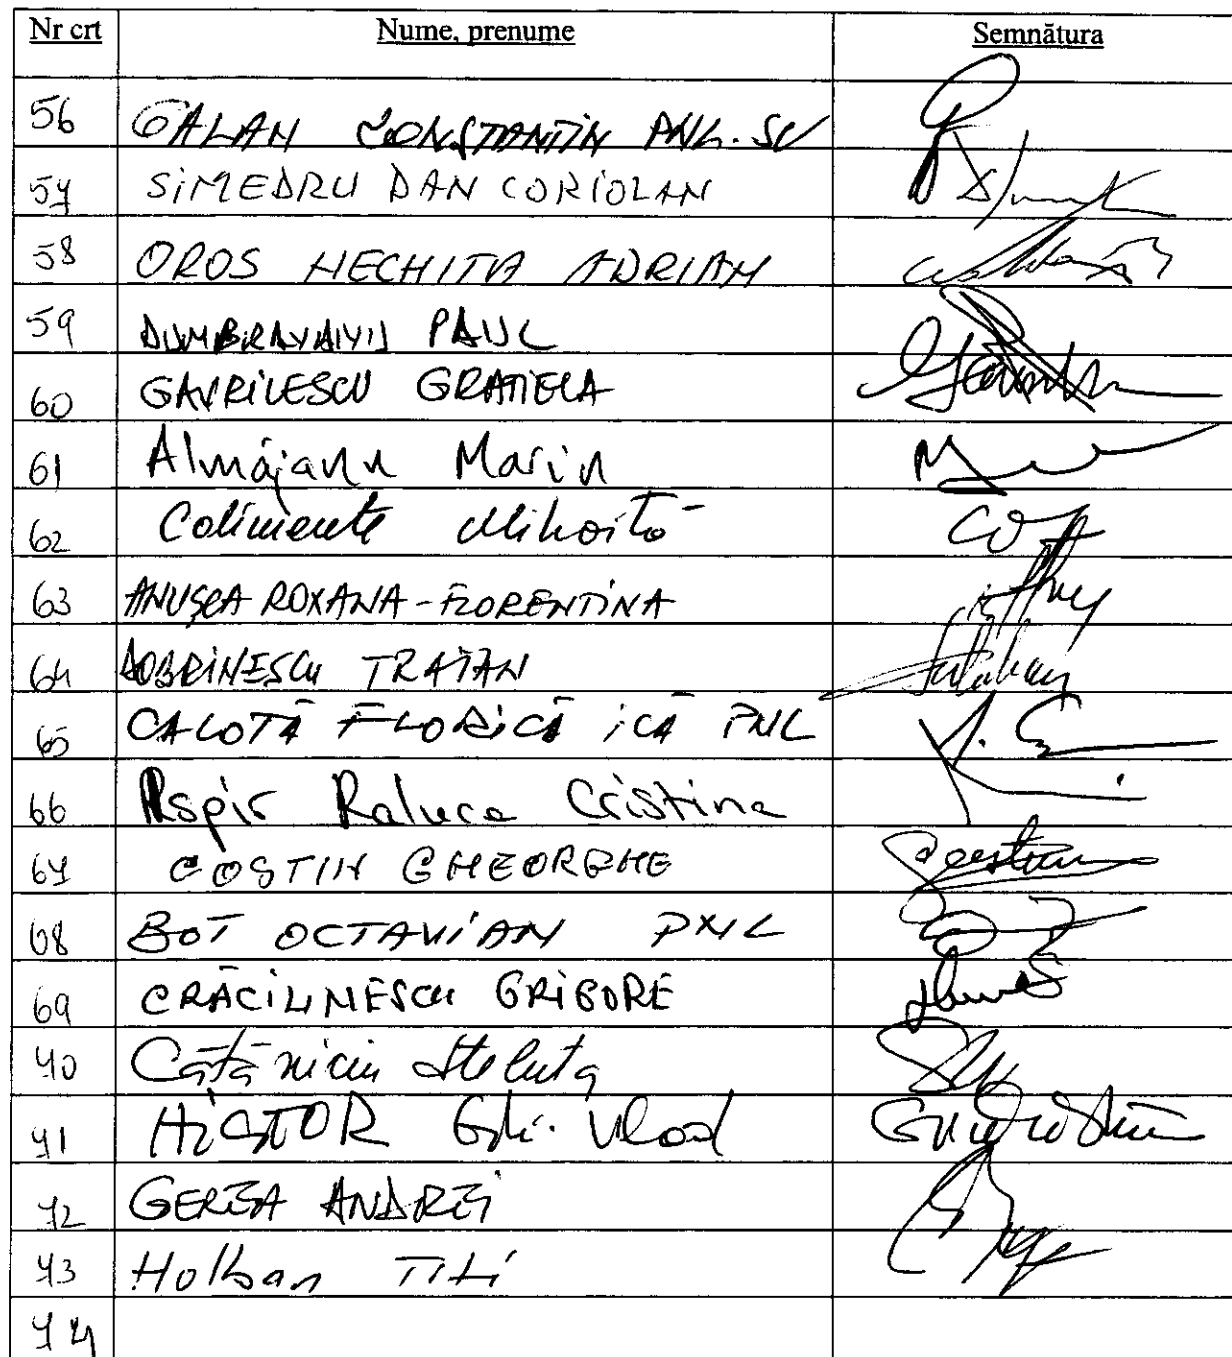 Nr crt Nume, prenume Semnătura
56 GALAN CONSTANTIN PNL.SV
57 SIMEDRU DAN CORIOLAN
58 OROS NECHITA ADRIAN
59 DUMBRAVANU PAUL
60 GAVRILESCU GRATIELA
61 Almăjanu Marin
62 Calimente Mihăiță
63 ANUȘCA ROXANA-FLORENTINA
64 DOBRINESCU TRAIAN
65 CALOTĂ FLORICĂ ICĂ PNL
66 Aspir Raluca Cristina
67 COSTIN GHEORGHE
68 BOT OCTAVIAN PNL
69 CRĂCIUNESCU GRIGORE
70 Cătăniciu Steluța
71 Gh. Vlad
72 GEREA ANDREI
73 Holban Titi
74